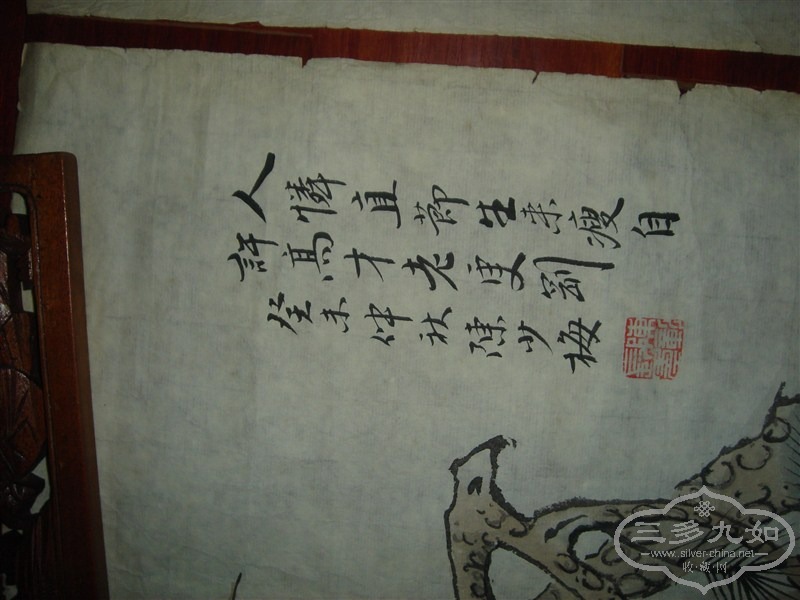 人憐直節生來瘦自
許高才老更剛
癸未仲秋陳少梅
三多九如
www.silver-china.net
收·藏·网